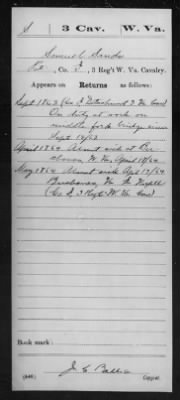 S | 3 Cav. | W. Va.
Samuel Sands
Co. I, 3 Reg't W. Va. Cavalry.
Appears on Returns as follows:
Sept 1863 (Co I Detachment 3 W. Cav)
On duty at work on
middle fork bridge since
Sept 13/63
April 1864 Absent sick at Bu-
channon W. Va, April 10/64
May 1864 Absent sick Apl 12/64
Buchanon, W.
(Co. I 3 Regt W. Va Cav)
Book mark:
(646)
Copyist.